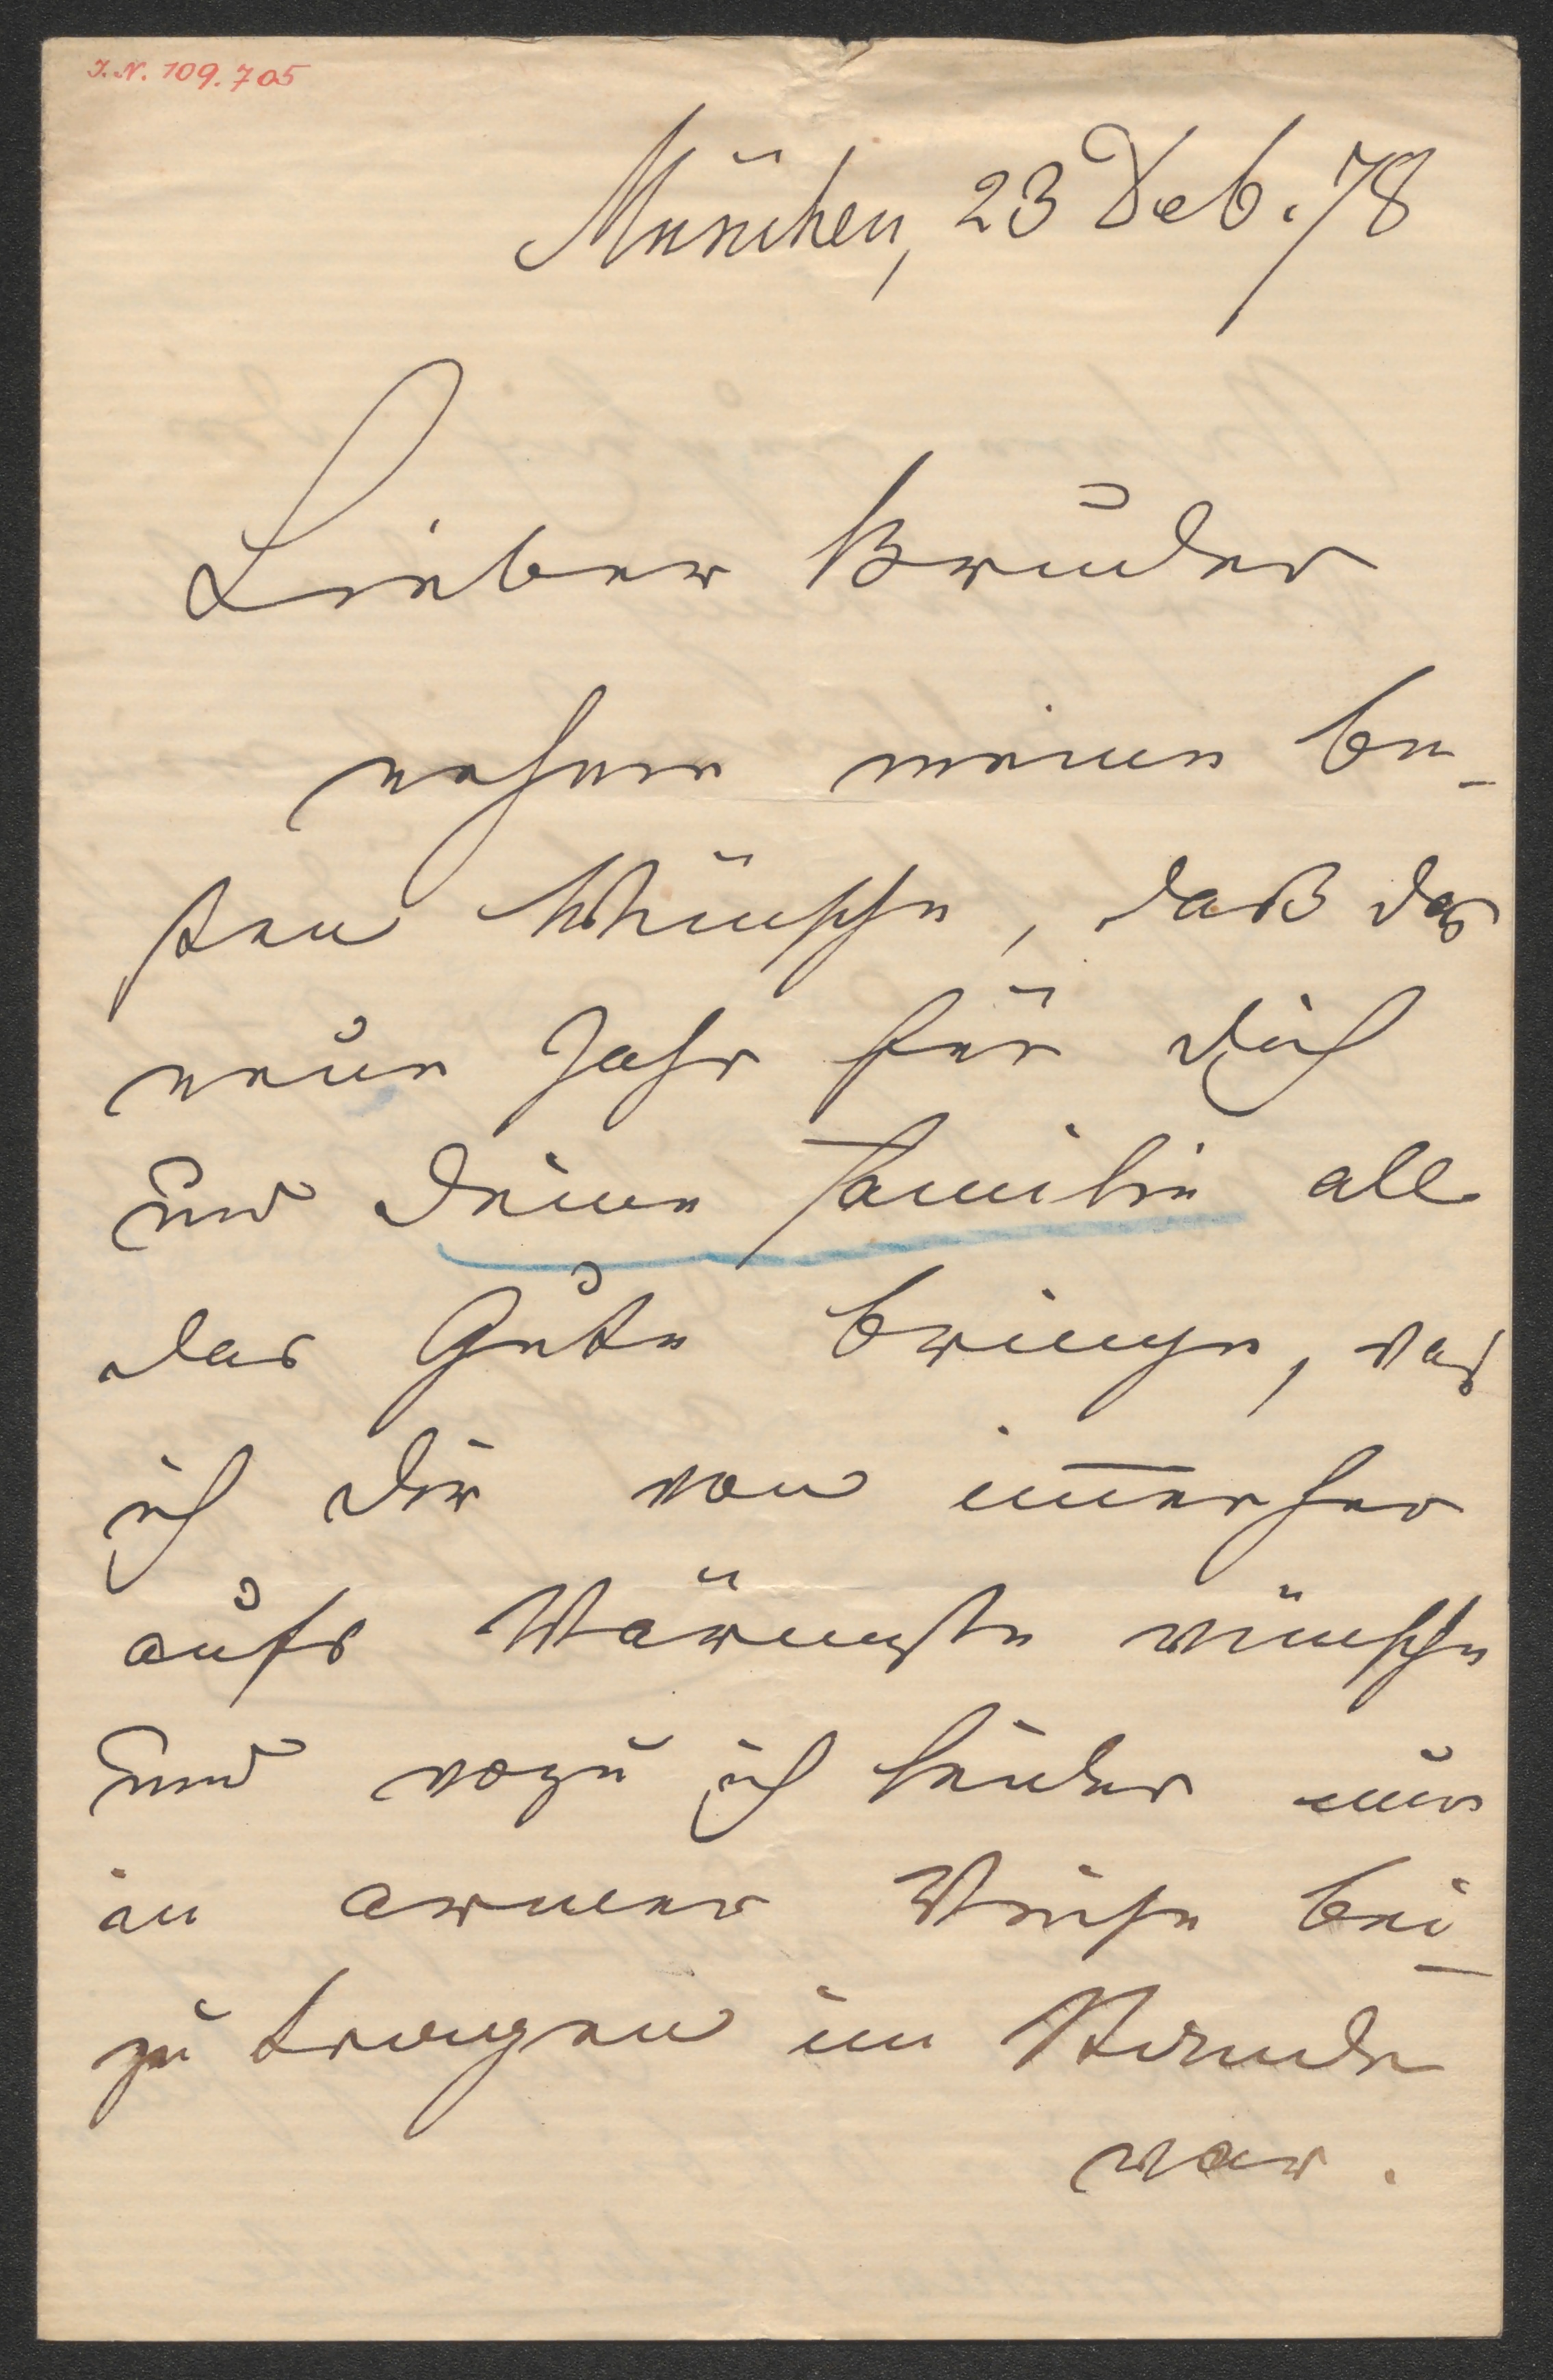 I.N. 109.705
München, 23 Deb. 78
Lieber Bruder
nehme meine be-
sten Wünsche, daß das
neue Jahr für dich
und deine Familie all
das Gute bringe, was
ich dir von im̅erher
aufs Wärmste wünsche
und wozu ich leider nur
in armer Weise bei-
zu tragen im Stande
war.